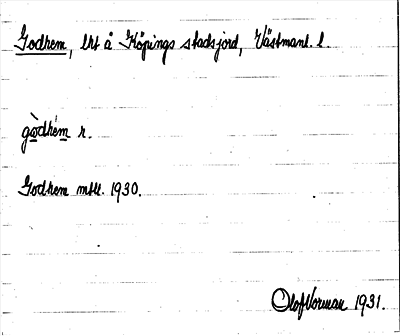 Godhem, lht å Köpings stadsjord, Västmanl. l.
gòdhém r.
Godhem mtll. 1930.
Olof Norman 1931.